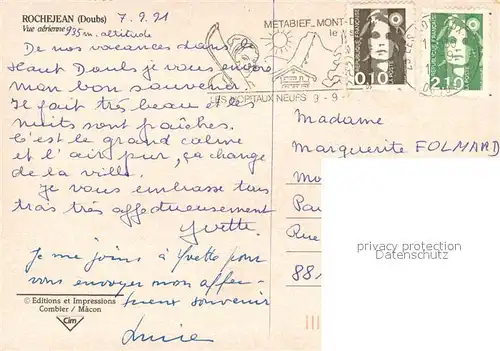 ROCHEJEAN (Doubs)
Vue aérienne 935 m. altitude
7.9.91
De nos vacances dans le
Haut Doubs je vous envoie
mon bon souvenir.
Il fait très beau et les
nuits sont fraîches.
C'est le grand calme
et l'air pur, ça change
de la ville.
Je vous embrasse tous
trois très affectueusement
Yvette.
Je me joins à Yvette pour
vous envoyer mon affec-
tueux souvenir
© Editions et Impressions
Combier / Mâcon
Cim
METABIEF_MONT-D
le
LES HOPITAUX NEUFS 9-9
0,10
2,10
Madame
Marguerite FOLMARD
Rue
881
privacy protection
Datenschutz